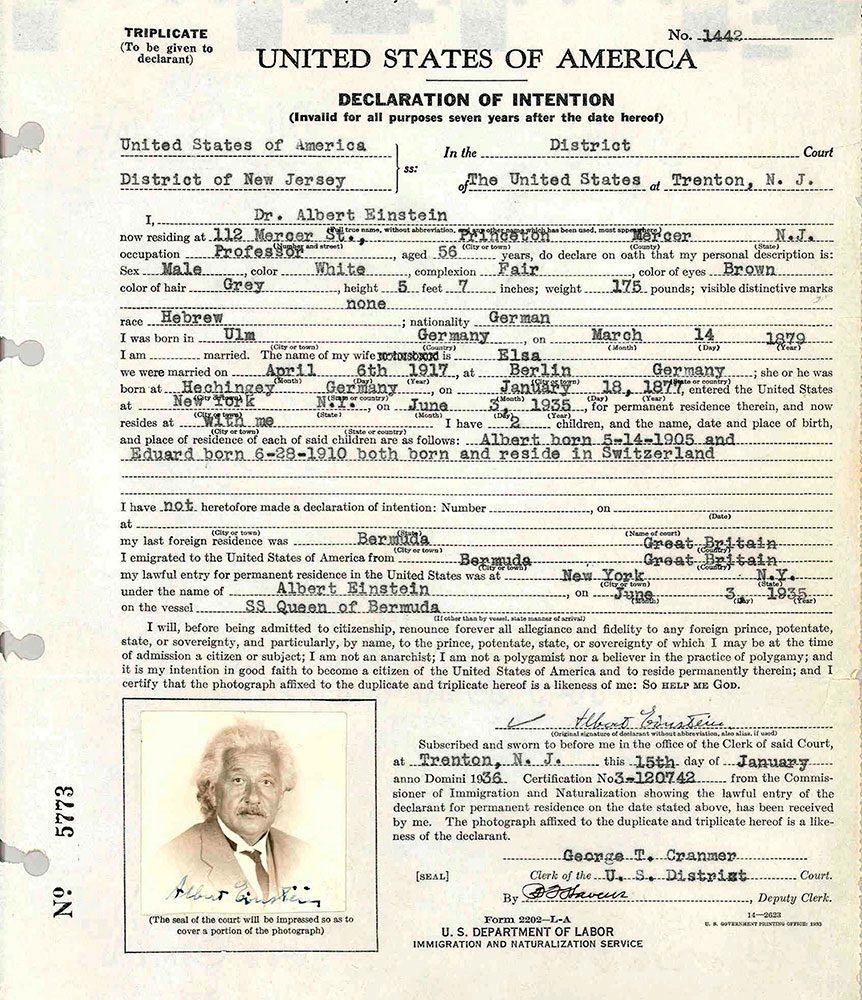 TRIPLICATE
(To be given to
declarant)
No. 1442
UNITED STATES OF AMERICA
DECLARATION OF INTENTION
(Invalid for all purposes seven years after the date hereof)
United States of America
District of New Jersey
ss:
In the District Court
of The United States at Trenton, N. J.
I, Dr. Albert Einstein
(Full true name, without abbreviation, and any other name which has been used, must appear here)
now residing at 112 Mercer St., Princeton Mercer N.J.
(Number and street) (City or town) (County) (State)
occupation Professor, aged 56 years, do declare on oath that my personal description is:
Sex Male, color White, complexion Fair, color of eyes Brown
color of hair Grey, height 5 feet 7 inches; weight 175 pounds; visible distinctive marks
none
race Hebrew; nationality German
I was born in Ulm Germany, on March 14 1879
(City or town) (Country) (Month) (Day) (Year)
I am married. The name of my wife is Elsa
we were married on April 6th 1917, at Berlin Germany; she or he was
(Month) (Day) (Year) (City or town) (State or country)
born at Hechingey Germany, on January 18, 1877, entered the United States
(City or town) (State or country) (Month) (Day) (Year)
at New York N.Y., on June 3, 1935, for permanent residence therein, and now
(City or town) (State) (Month) (Day) (Year)
resides at With me I have 2 children, and the name, date and place of birth,
(City or town) (State or country)
and place of residence of each of said children are as follows: Albert born 5-14-1905 and
Eduard born 6-28-1910 both born and reside in Switzerland
I have not heretofore made a declaration of intention: Number, on
(Date)
at
(City or town) (State) (Name of court)
my last foreign residence was Bermuda Great Britain
(City or town) (Country)
I emigrated to the United States of America from Bermuda Great Britain
(City or town) (Country)
my lawful entry for permanent residence in the United States was at New York N.Y.
(City or town) (State)
under the name of Albert Einstein, on June 3, 1935
(Month) (Day) (Year)
on the vessel SS Queen of Bermuda
(If other than by vessel, state manner of arrival)
I will, before being admitted to citizenship, renounce forever all allegiance and fidelity to any foreign prince, potentate,
state, or sovereignty, and particularly, by name, to the prince, potentate, state, or sovereignty of which I may be at the time
of admission a citizen or subject; I am not an anarchist; I am not a polygamist nor a believer in the practice of polygamy; and
it is my intention in good faith to become a citizen of the United States of America and to reside permanently therein; and I
certify that the photograph affixed to the duplicate and triplicate hereof is a likeness of me: SO HELP ME GOD.
Albert Einstein
(Original signature of declarant without abbreviation, also alias, if used)
Subscribed and sworn to before me in the office of the Clerk of said Court,
at Trenton, N. J. this 15th day of January
anno Domini 1936 Certification No 3-120742 from the Commis-
sioner of Immigration and Naturalization showing the lawful entry of the
declarant for permanent residence on the date stated above, has been received
by me. The photograph affixed to the duplicate and triplicate hereof is a like-
ness of the declarant.
George T. Cranmer
[SEAL] Clerk of the U. S. District Court.
By , Deputy Clerk.
Form 2202-L-A
U. S. DEPARTMENT OF LABOR
IMMIGRATION AND NATURALIZATION SERVICE
14-2623
U. S. GOVERNMENT PRINTING OFFICE: 1933
Albert Einstein
(The seal of the court will be impressed so as to
cover a portion of the photograph)
No 5773